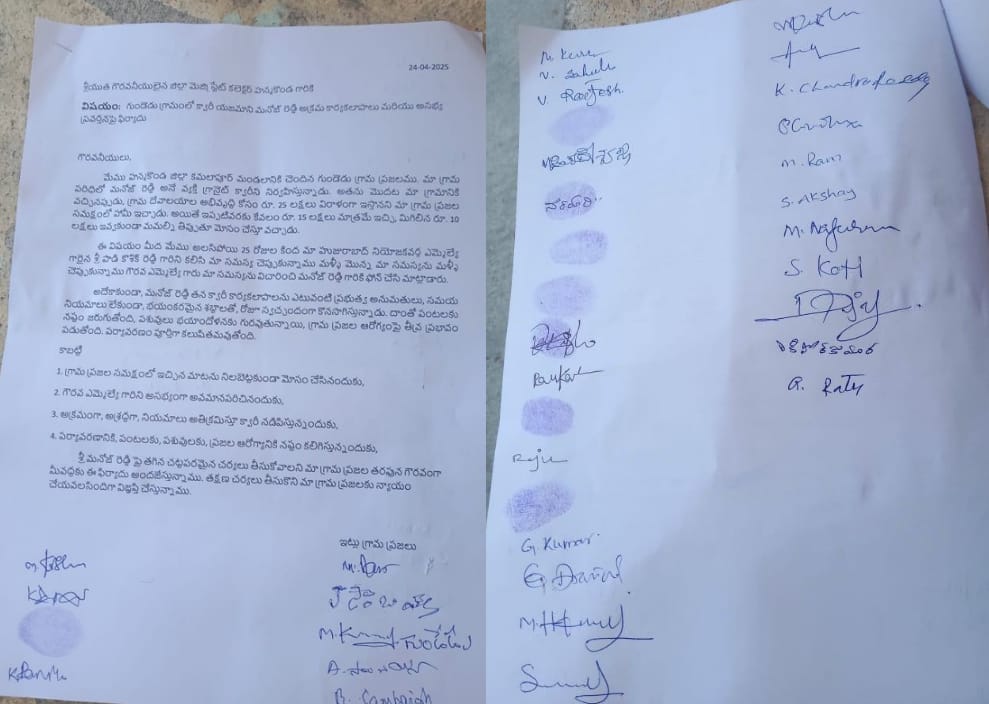 24-04-2025
శ్రీయుత గౌరవనీయులైన జిల్లా మెజిస్ట్రేట్ కలెక్టర్ హన్మకొండ గారికి
విషయం: గుండెడు గ్రామంలో క్వారీ యజమాని మనోజ్ రెడ్డి అక్రమ కార్యకలాపాలు మరియు అసభ్య
ప్రవర్తనపై ఫిర్యాదు
గౌరవనీయులు,
మేము హన్మకొండ జిల్లా కమలాపూర్ మండలానికి చెందిన గుండెడు గ్రామ ప్రజలము. మా గ్రామ
పరిధిలో మనోజ్ రెడ్డి అనే వ్యక్తి గ్రానైట్ క్వారీని నిర్వహిస్తున్నాడు. అతను మొదట మా గ్రామానికి
వచ్చినప్పుడు, గ్రామ దేవాలయాల అభివృద్ధి కోసం రూ. 25 లక్షలు విరాళంగా ఇస్తానని మా గ్రామ ప్రజల
సమక్షంలో హామీ ఇచ్చాడు. అయితే ఇప్పటివరకు కేవలం రూ. 15 లక్షలు మాత్రమే ఇచ్చి, మిగిలిన రూ. 10
లక్షలు ఇవ్వకుండా మమల్ని తిప్పుతూ మోసం చేస్తూ వచ్చాడు.
ఈ విషయం మీద మేము అలసిపోయి 25 రోజుల కింద మా హుజురాబాద్ నియోజకవర్గ ఎమ్మెల్యే
గారైన శ్రీ పాడి కౌశిక్ రెడ్డి గారిని కలిసి మా సమస్య చెప్పుకున్నాము మళ్ళీ మొన్న మా సమస్యను మళ్ళీ
చెప్పుకున్నాము గౌరవ ఎమ్మెల్యే గారు మా సమస్యను విచారించి మనోజ్ రెడ్డి గారికి ఫోన్ చేసి మాట్లాడారు.
అదేకాకుండా, మనోజ్ రెడ్డి తన క్వారీ కార్యకలాపాలను ఎటువంటి ప్రభుత్వ అనుమతులు, సమయ
నియమాలు లేకుండా, భయంకరమైన శబ్దాలతో, రోజూ స్వచ్ఛందంగా కొనసాగిస్తున్నాడు. దాంతో పంటలకు
నష్టం జరుగుతోంది, పశువులు భయాందోళనకు గురవుతున్నాయి, గ్రామ ప్రజల ఆరోగ్యంపై తీవ్ర ప్రభావం
పడుతోంది. పర్యావరణం పూర్తిగా కలుషితమవుతోంది.
కాబట్టి
1. గ్రామ ప్రజల సమక్షంలో ఇచ్చిన మాటను నిలబెట్టకుండా మోసం చేసినందుకు,
2. గౌరవ ఎమ్మెల్యే గారిని అసభ్యంగా అవమానపరిచినందుకు,
3. అక్రమంగా, అశ్రద్ధగా, నియమాలు అతిక్రమిస్తూ క్వారీ నడిపిస్తున్నందుకు,
4. పర్యావరణానికి, పంటలకు, పశువులకు, ప్రజల ఆరోగ్యానికి నష్టం కలిగిస్తున్నందుకు,
శ్రీ మనోజ్ రెడ్డి పై తగిన చట్టపరమైన చర్యలు తీసుకోవాలని మా గ్రామ ప్రజల తరపున గౌరవంగా
మీవద్దకు ఈ ఫిర్యాదు అందజేస్తున్నాము. తక్షణ చర్యలు తీసుకొని మా గ్రామ ప్రజలకు న్యాయం
చేయవలసిందిగా విజ్ఞప్తి చేస్తున్నాము.
ఇట్లు గ్రామ ప్రజలు
గుండేడు
V. Rahul
V. Raajesh.
Raju
G. Kumar.
K. Chandra
M. Ram
S. Akshay
S. Koti